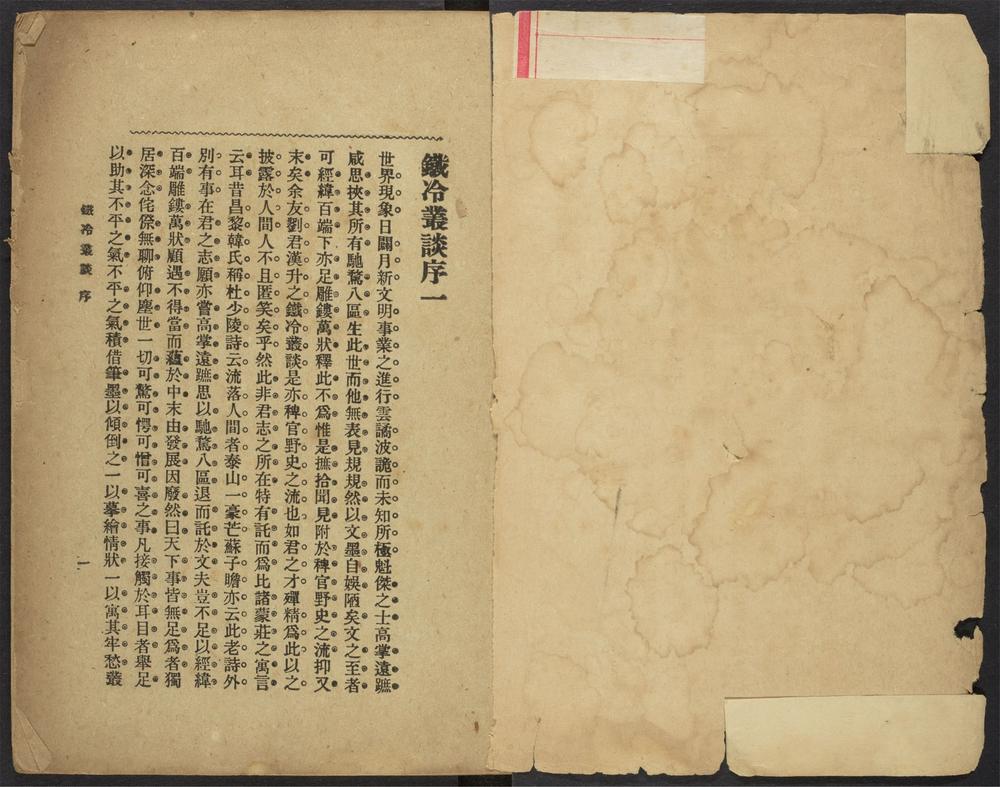 鐵冷叢談序一
世界現象日闢月新文明事業之進行雲譎波詭而未知所極魁傑之士高掌遠蹠
咸思挾其所有馳驁八區生此世而他無表見規規然以文墨自娛陋矣文之至者
可經緯百端下亦足雕鏤萬狀釋此不爲惟是摭拾聞見附於稗官野史之流抑又
末矣余友劉君漢升之鐵冷叢談是亦稗官野史之流也如君之才殫精爲此以之
披露於人間人不且匿笑矣乎然此非君志之所在特有託而爲比諸蒙莊之寓言
云耳昔昌黎韓氏稱杜少陵詩云流落人間者泰山一豪芒蘇子瞻亦云此老詩外
別有事在君之志願亦嘗高掌遠蹠思以馳驁八區退而託於文夫豈不足以經緯
百端雕鏤萬狀顧遇不得當而蘊於中末由發展因廢然曰天下事皆無足爲者獨
居深念侘傺無聊俯仰塵世一切可驚可愕可憎可喜之事凡接觸於耳目者舉足
以助其不平之氣不平之氣積借筆墨以傾倒之一以摹繪情狀一以寓其牢愁叢
鐵冷叢談 序
一